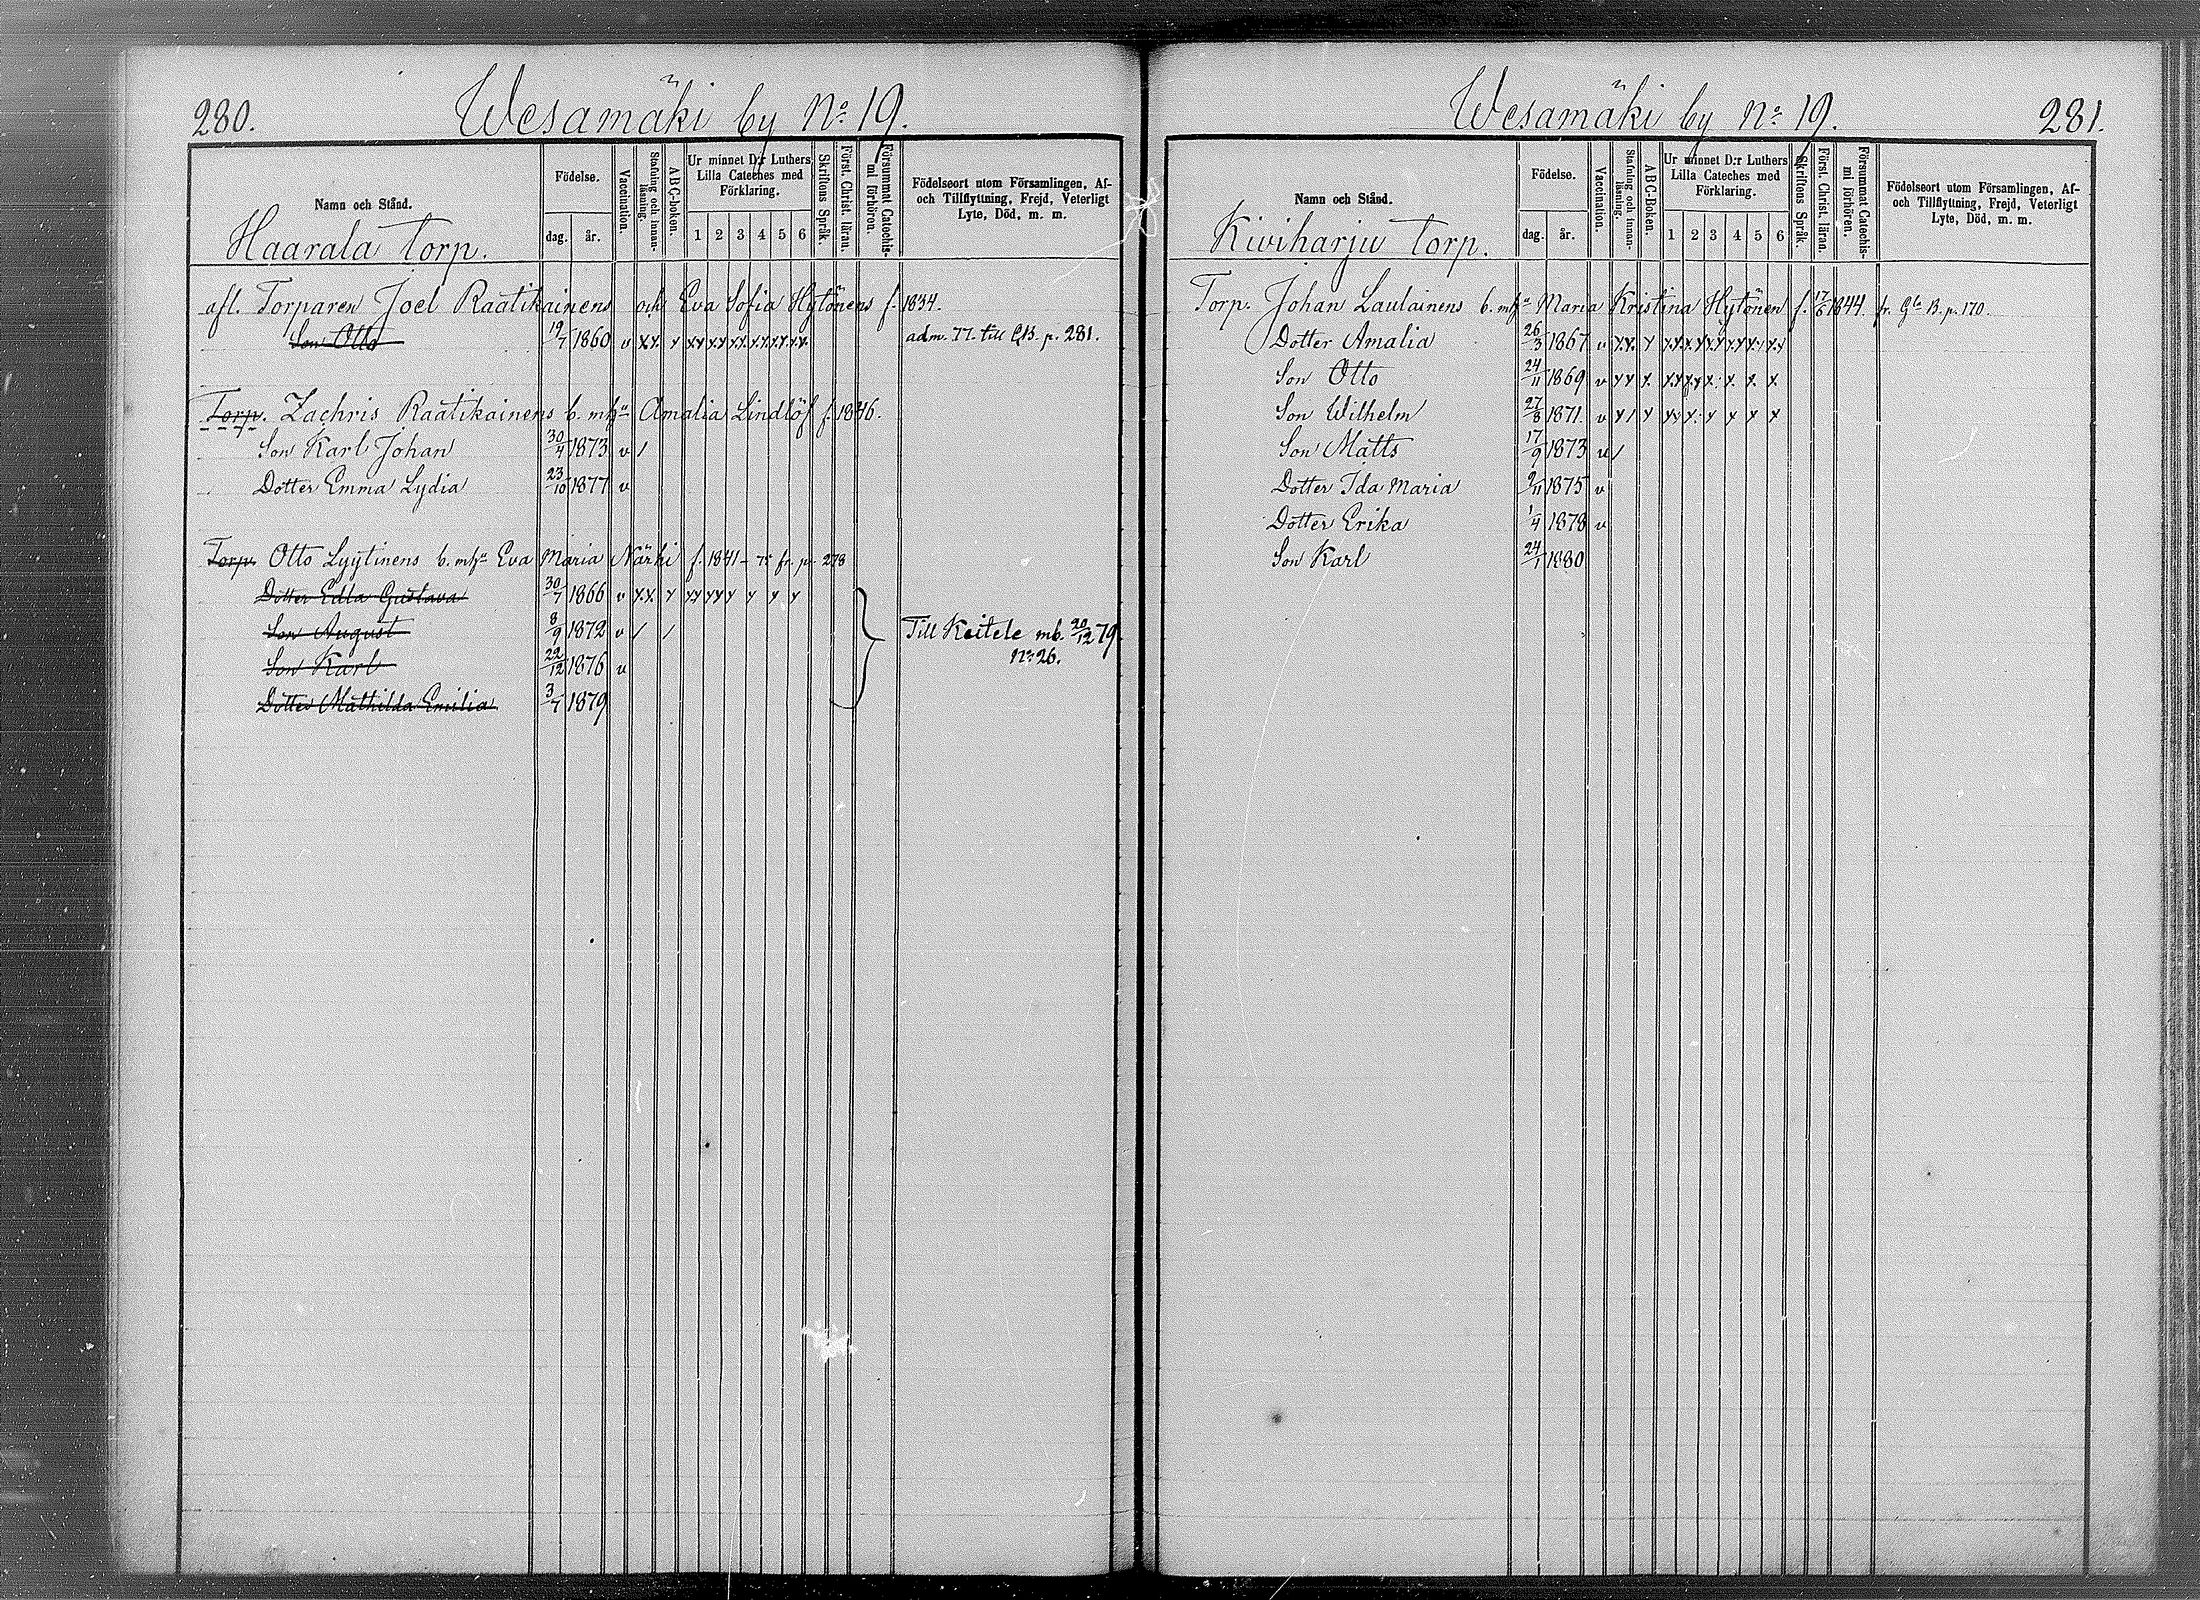 280.
Wesamäki by No 19.
Namn och Stånd.
Födelse.
dag. år.
Vaccination.
Stafning och innan-
läsning.
ABC-boken.
Ur minnet D:r Luthers
Lilla Cateches med
Förklaring.
1 2 3 4 5 6
Skriftens Språk.
Först. Christ. läran.
Försummat Catechis-
mi förhören.
Födelseort utom Församlingen, Af-
och Tillflyttning, Frejd, Veterligt
Lyte, Död, m. m.
Haarala torp.
afl. Torparen Joel Raatikainens och Eva Sofia Hytönens f. 1834.
Son Otto 19/7 1860 v xx x xx xx xx xx xx xx adm. 77. till GB. p. 281.
Torp. Zachris Raatikainens b. m hu Amalia Lindlöf f. 1846.
Son Karl Johan 30/4 1873 v /
Dotter Emma Lydia 23/10 1877 v
Torp. Otto Lyytinens b. m hu Eva Maria Närhi f. 1841 - 75 fr. p. 278
Dotter Edla Gustava 30/7 1866 v xx x xx xx x x x x
Son August 8/9 1872 v / / Till Keitele mb. 20/12 79
Son Karl 22/12 1876 v No 26.
Dotter Mathilda Emilia 3/7 1879
Wesamäki by No 19.
281.
Namn och Stånd.
Födelse.
dag. år.
Vaccination.
Stafning och innan-
läsning.
ABC-Boken.
Ur minnet D:r Luthers
Lilla Cateches med
Förklaring.
1 2 3 4 5 6
Skriftens Språk.
Först. Christ. läran.
Försummat Catechis-
mi förhören.
Födelseort utom Församlingen, Af-
och Tillflyttning, Frejd, Veterligt
Lyte, Död, m. m.
Kiviharju torp.
Torp. Johan Laulainens b. m hu Maria Kristina Hytönen f. 17/6 1844. fr. Gla B. p. 170.
Dotter Amalia 26/3 1867 v xx x xx xx xx xx xx xx
Son Otto 24/11 1869 v xx x xx xx x x x x
Son Wilhelm 27/8 1871. v x/ x xx x x x x x
Son Matts 17/9 1873 v /
Dotter Ida Maria 9/11 1875 v
Dotter Erika 1/4 1878 v
Son Karl 24/1 1880